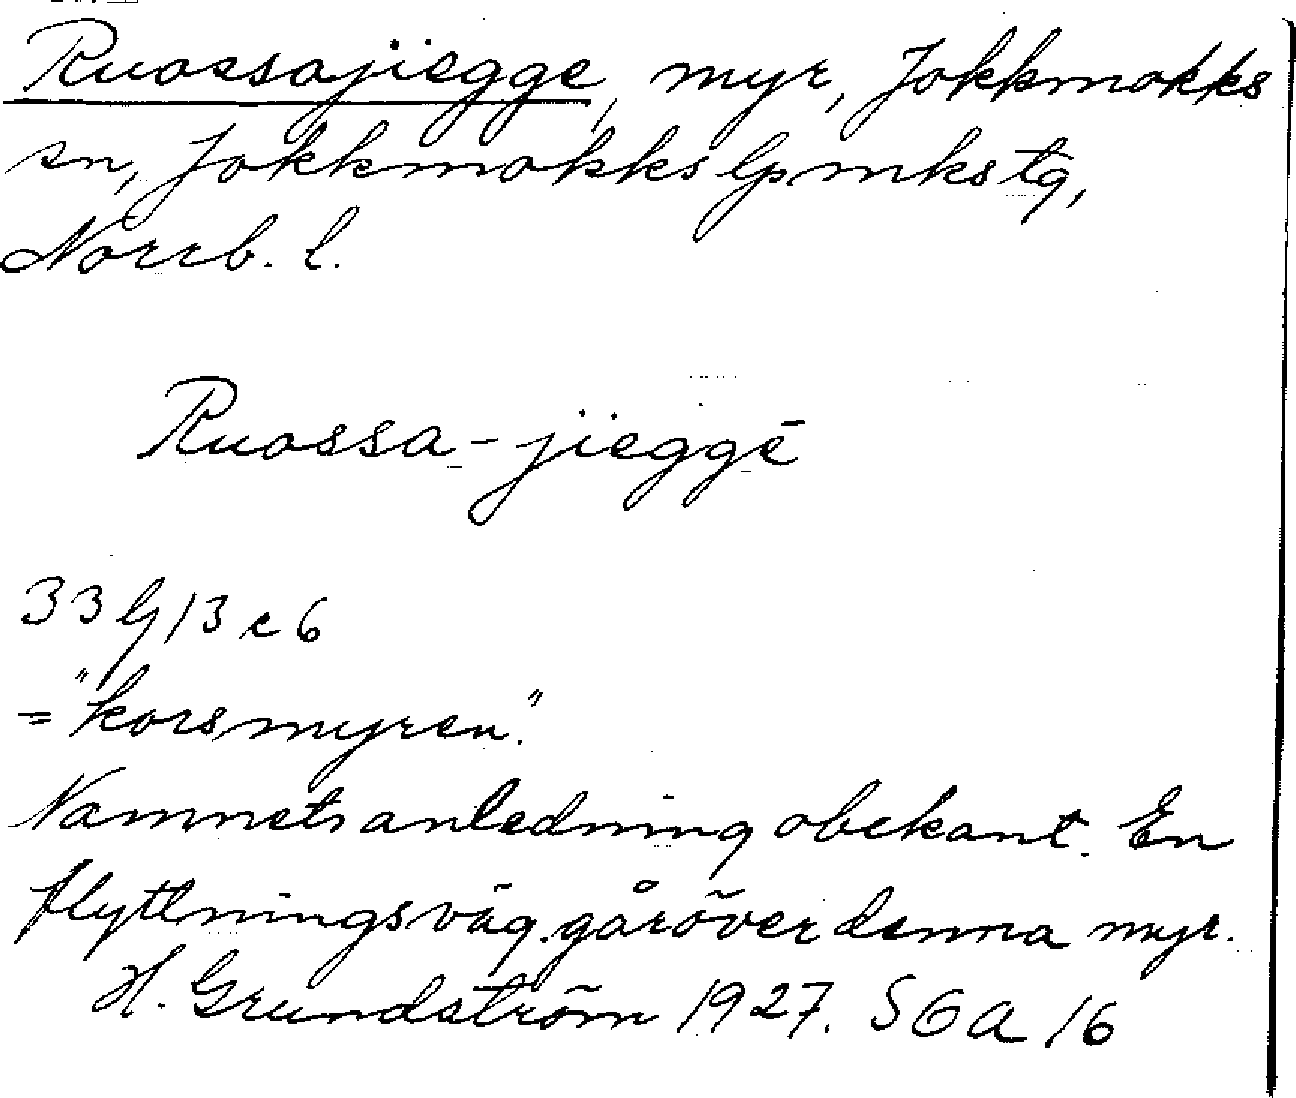 Ruossajiegge, myr, Jokkmokks
sn, Jokkmokks lpmkstg,
Norrb. l.
Ruossa-jieggē
33 G 13 c 6
="korsmyren".
Namnets anledning obekant. En
flyttningsväg går över denna myr.
H. Grundström 1927. SOA 16